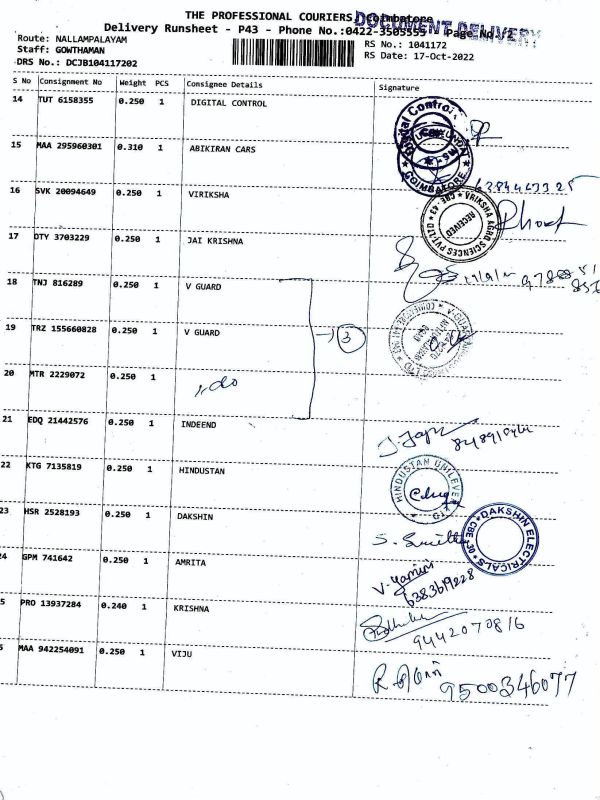 THE PROFESSIONAL COURIERS, Coimbatore
DOCUMENT DELIVERY
Delivery Runsheet - P43 - Phone No.:0422-3505555 Page No./2
Route: NALLAMPALAYAM RS No.: 1041172
Staff: GOWTHAMAN RS Date: 17-Oct-2022
DRS No.: DCJB104117202
S No Consignment No Weight PCS Consignee Details Signature
14 TUT 6158355 0.250 1 DIGITAL CONTROL
COIMBATORE
15 MAA 295960301 0.310 1 ABIKIRAN CARS
16 SVK 20094649 0.250 1 VIRIKSHA
VRIKSHA AGRO SCIENCES PVT.LTD CBE-43
RECEIVED
17 DTY 3703229 0.250 1 JAI KRISHNA
18 TNJ 816289 0.250 1 V GUARD
19 TRZ 155660828 0.250 1 V GUARD 3
20 MTR 2229072 0.250 1 do
21 EDQ 21442576 0.250 1 INDEEND
22 KTG 7135819 0.250 1 HINDUSTAN
HINDUSTAN UNILEVE
23 HSR 2528193 0.250 1 DAKSHIN
DAKSHIN ELECTRICALS CBE-30
24 GPM 741642 0.250 1 AMRITA V. Yamini
6383619228
5 PRO 13937284 0.240 1 KRISHNA
9442070816
MAA 942254091 0.250 1 VIJU
9500346077